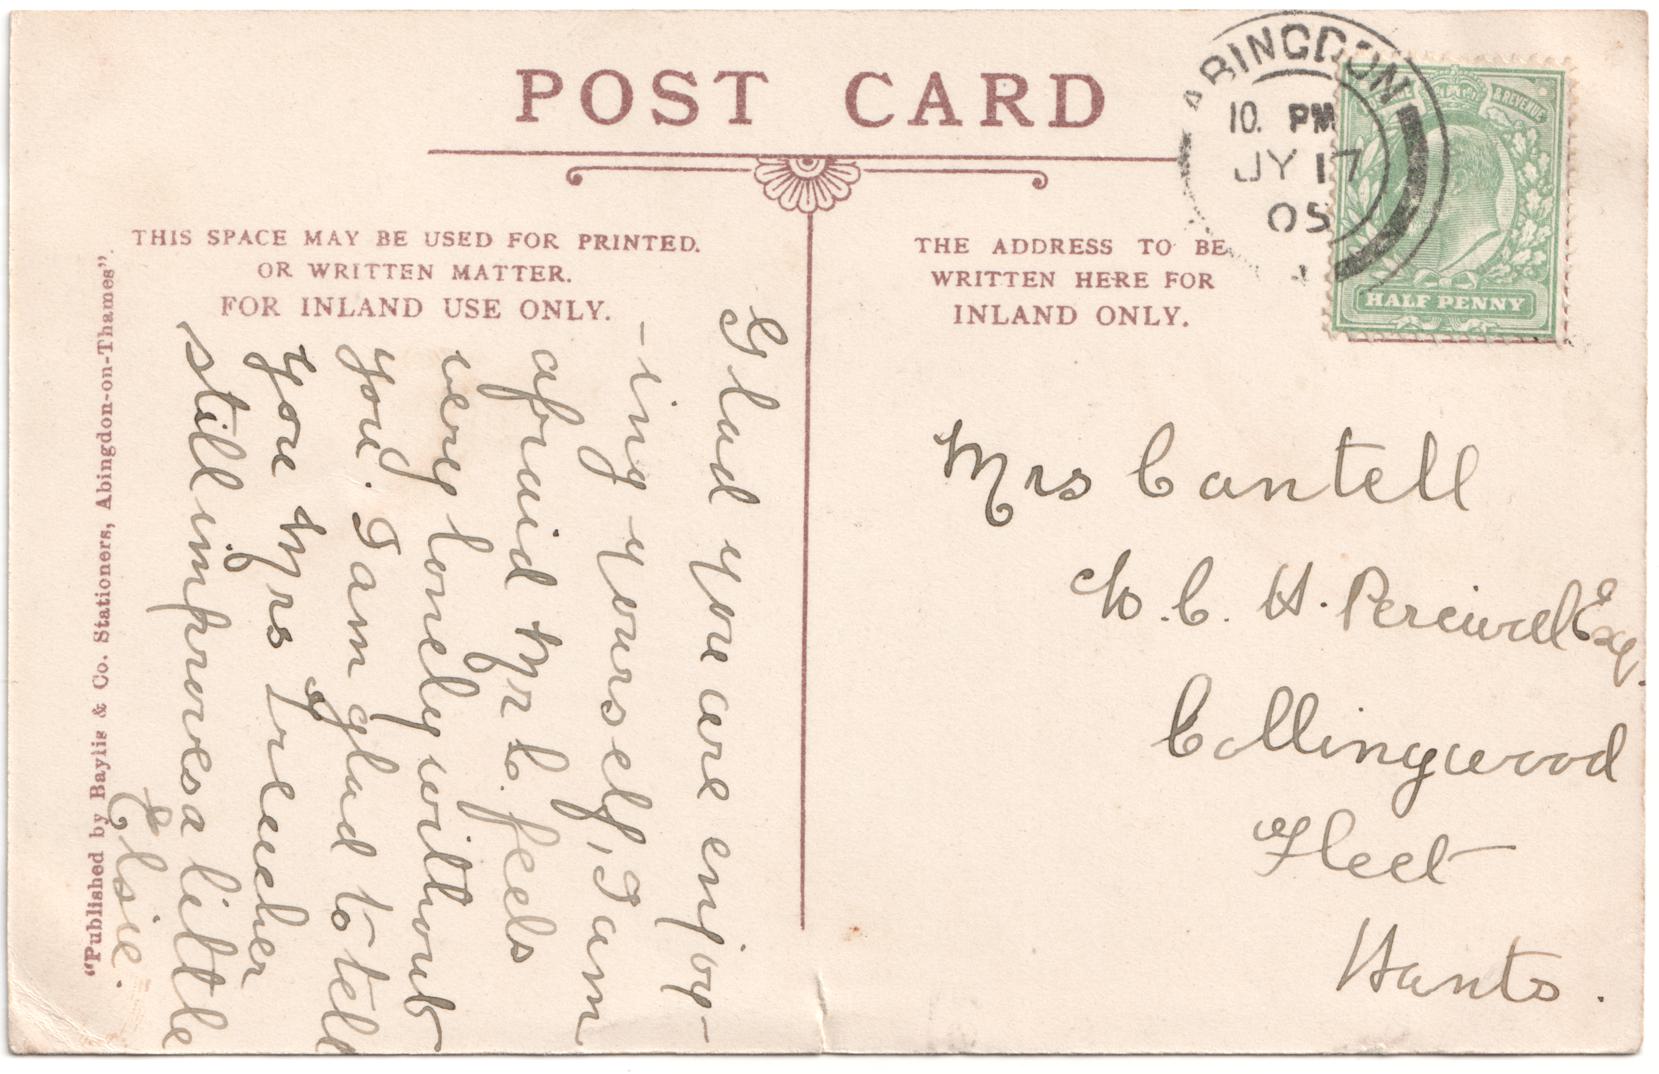 POST CARD
THIS SPACE MAY BE USED FOR PRINTED.
OR WRITTEN MATTER.
FOR INLAND USE ONLY.
THE ADDRESS TO BE
WRITTEN HERE FOR
INLAND ONLY.
ABINGDON
10. PM
JY 17
05
& REVENUE
HALF PENNY
Glad you are enjoy-
-ing yourself, I am
afraid Mr C. feels
very lonely without
you. I am glad to tell
you Mrs Treacher
still improves a little
Elsie.
Mrs Cantell
C. H. Percival Esq.
Collingwood
Fleet
Hants.
"Published by Baylis & Co. Stationers, Abingdon-on-Thames".